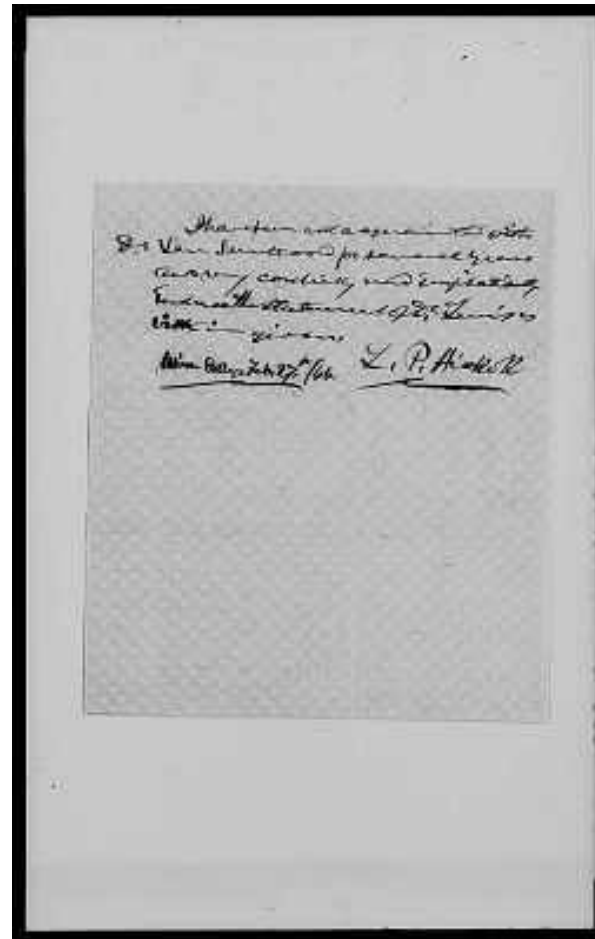 I have been well acquainted with
Dr Van Santvoord for several years
and very cordially and emphatically
endorse the statement of Dr. Lewis as
within given.
Union College Feb. 27th/66. L. P. Hickok